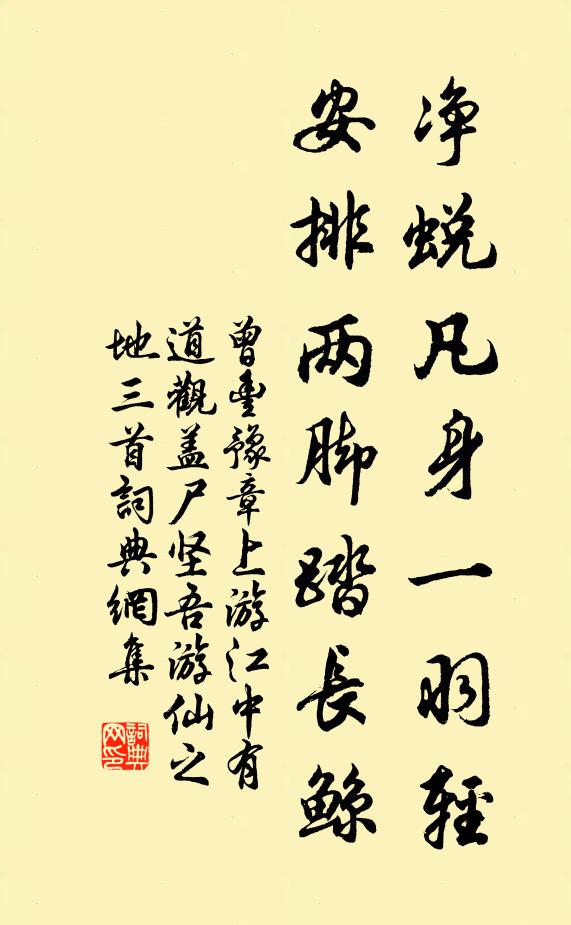 净蜕凡身一羽輕
安排两脚踏長鲸
曾豊豫章上游江中有
道觀盖尸坚吾游仙之
地三首詞典網集
詞典網印